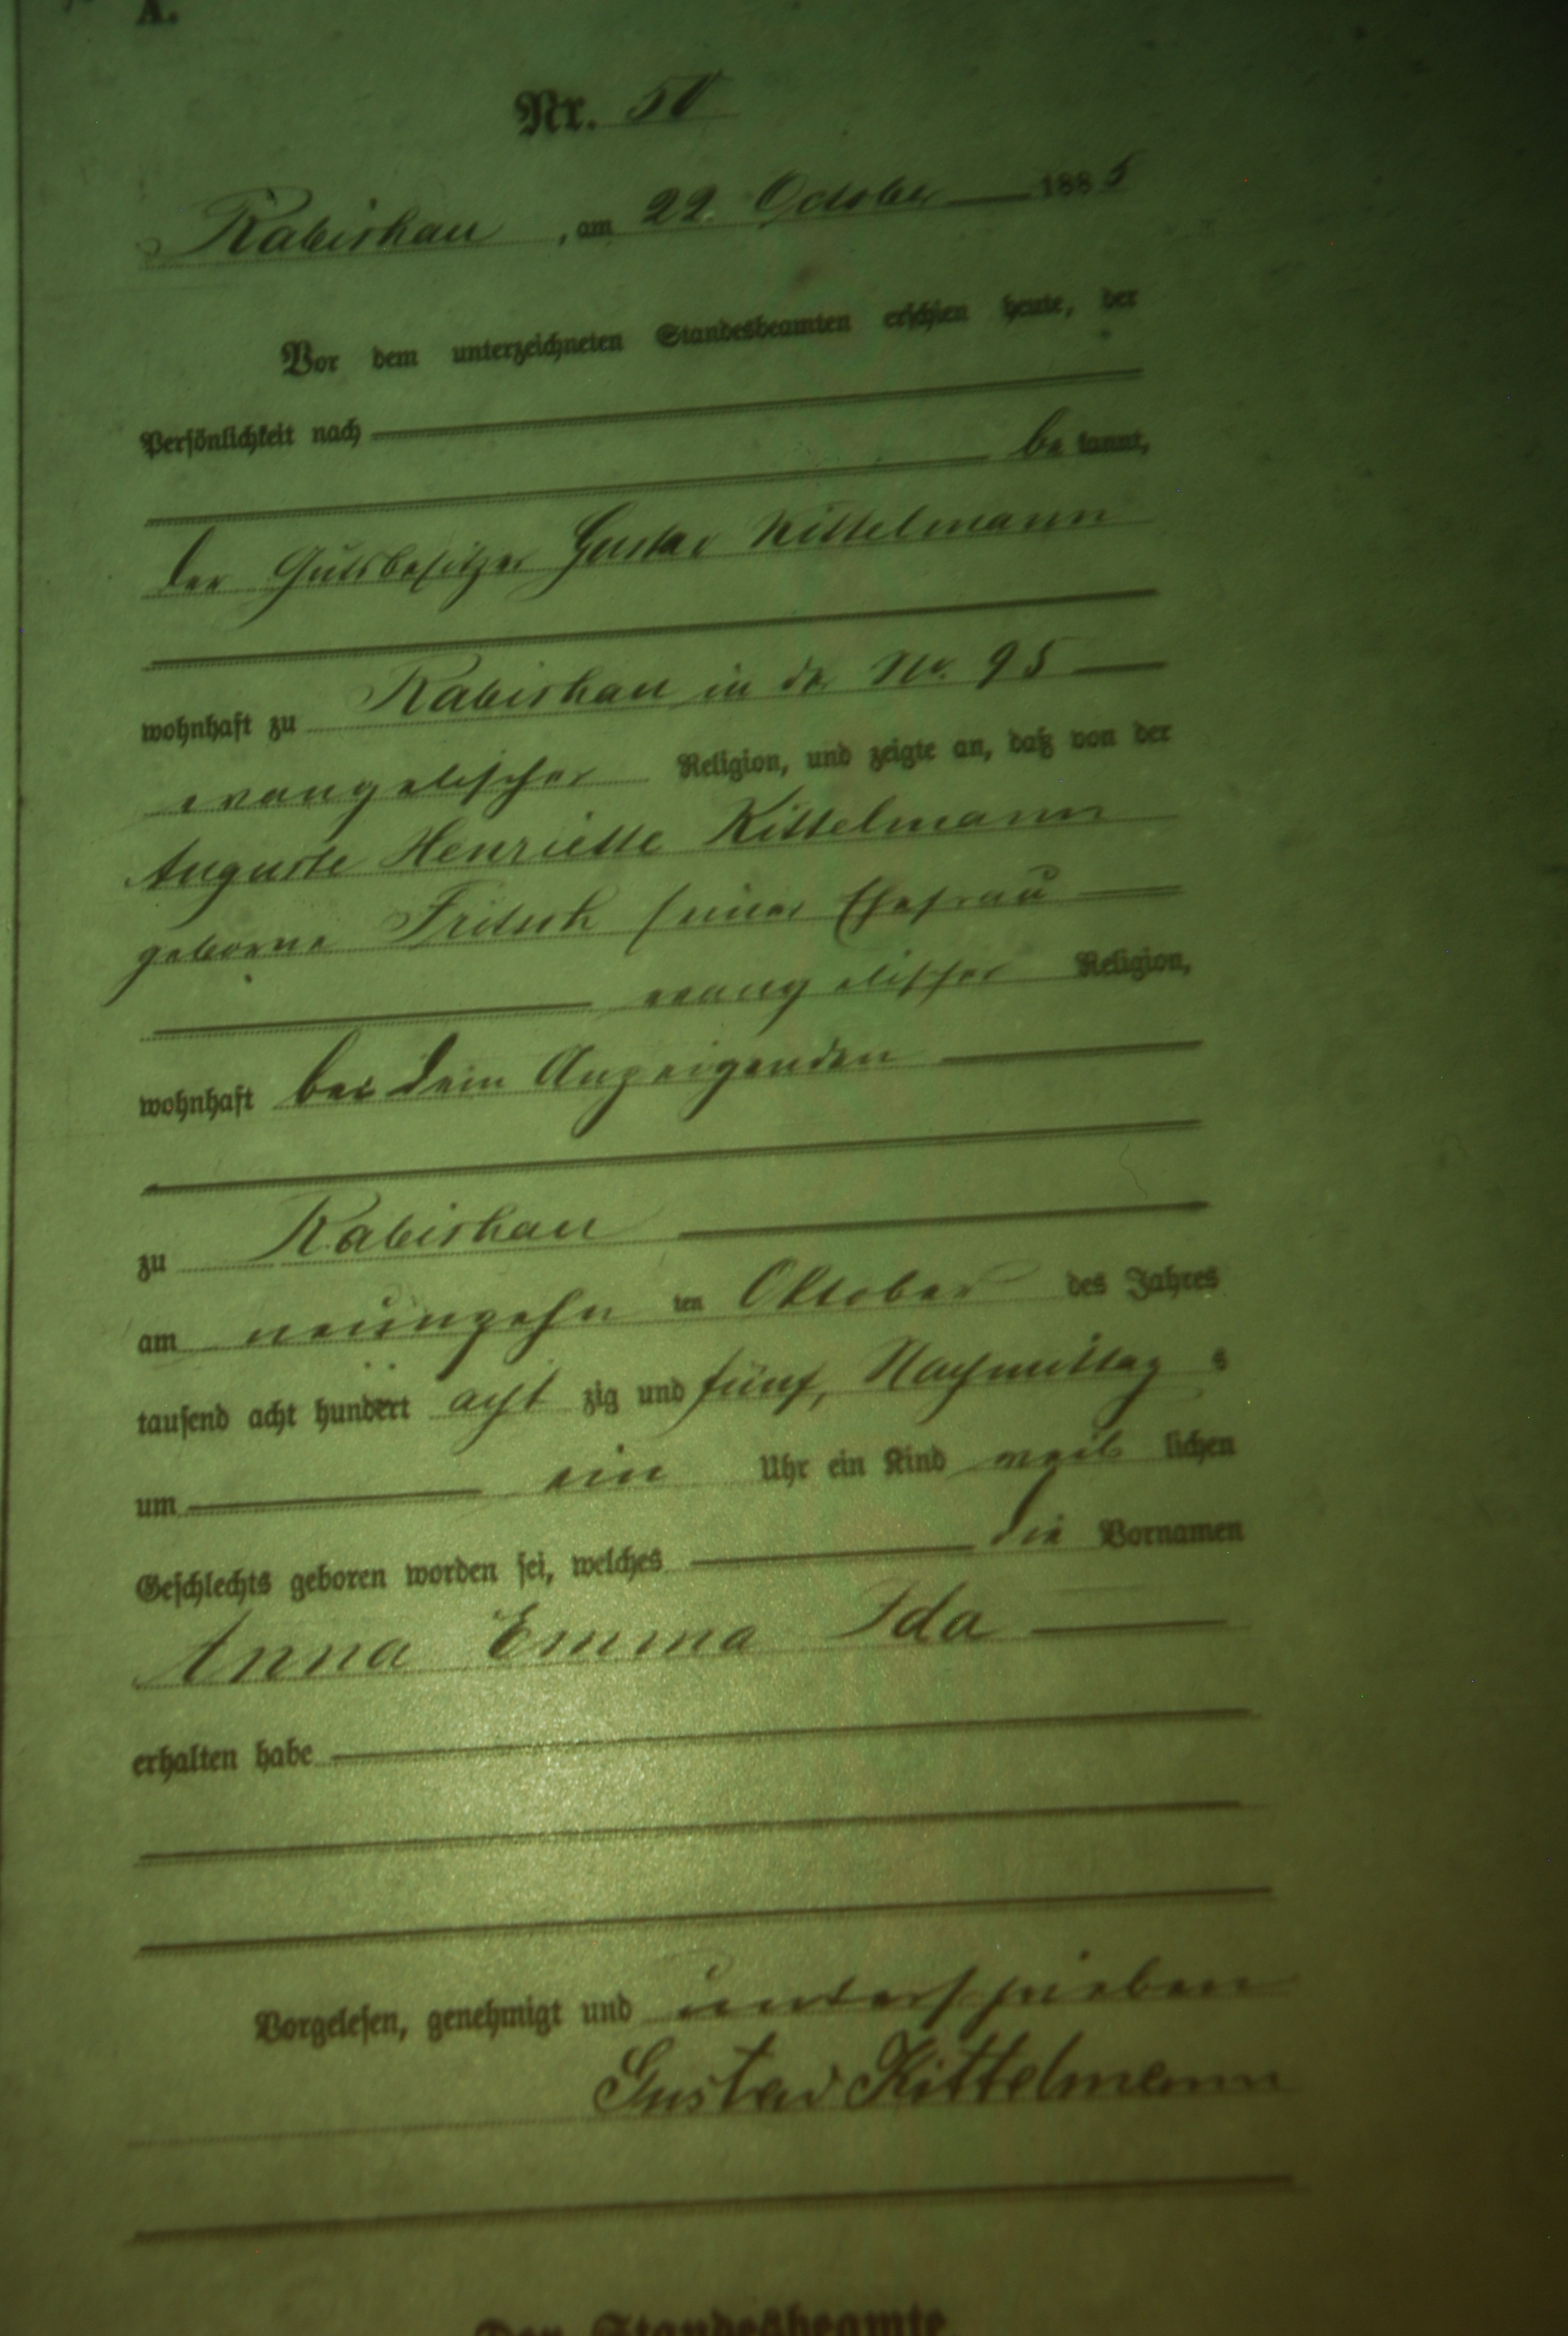 A.
Nr. 50
Rabishau, am 22. October 1885
Vor dem unterzeichneten Standesbeamten erschien heute, der
Persönlichkeit nach
be kannt,
der Gutsbesitzer Gustav Kittelmann
wohnhaft zu Rabishau in der No. 95
evangelischer Religion, und zeigte an, daß von der
Auguste Henriette Kittelmann
geborne Fritsch seiner Ehefrau
evangelischer Religion,
wohnhaft bei dem Anzeigenden
zu Rabishau
am neunzehn ten Oktober des Jahres
tausend acht hundert acht zig und fünf, Nachmittag s
um ein Uhr ein Kind weib lichen
Geschlechts geboren worden sei, welches die Vornamen
Anna Emma Ida
erhalten habe
Vorgelesen, genehmigt und unterschrieben
Gustav Kittelmann
Der Standesbeamte